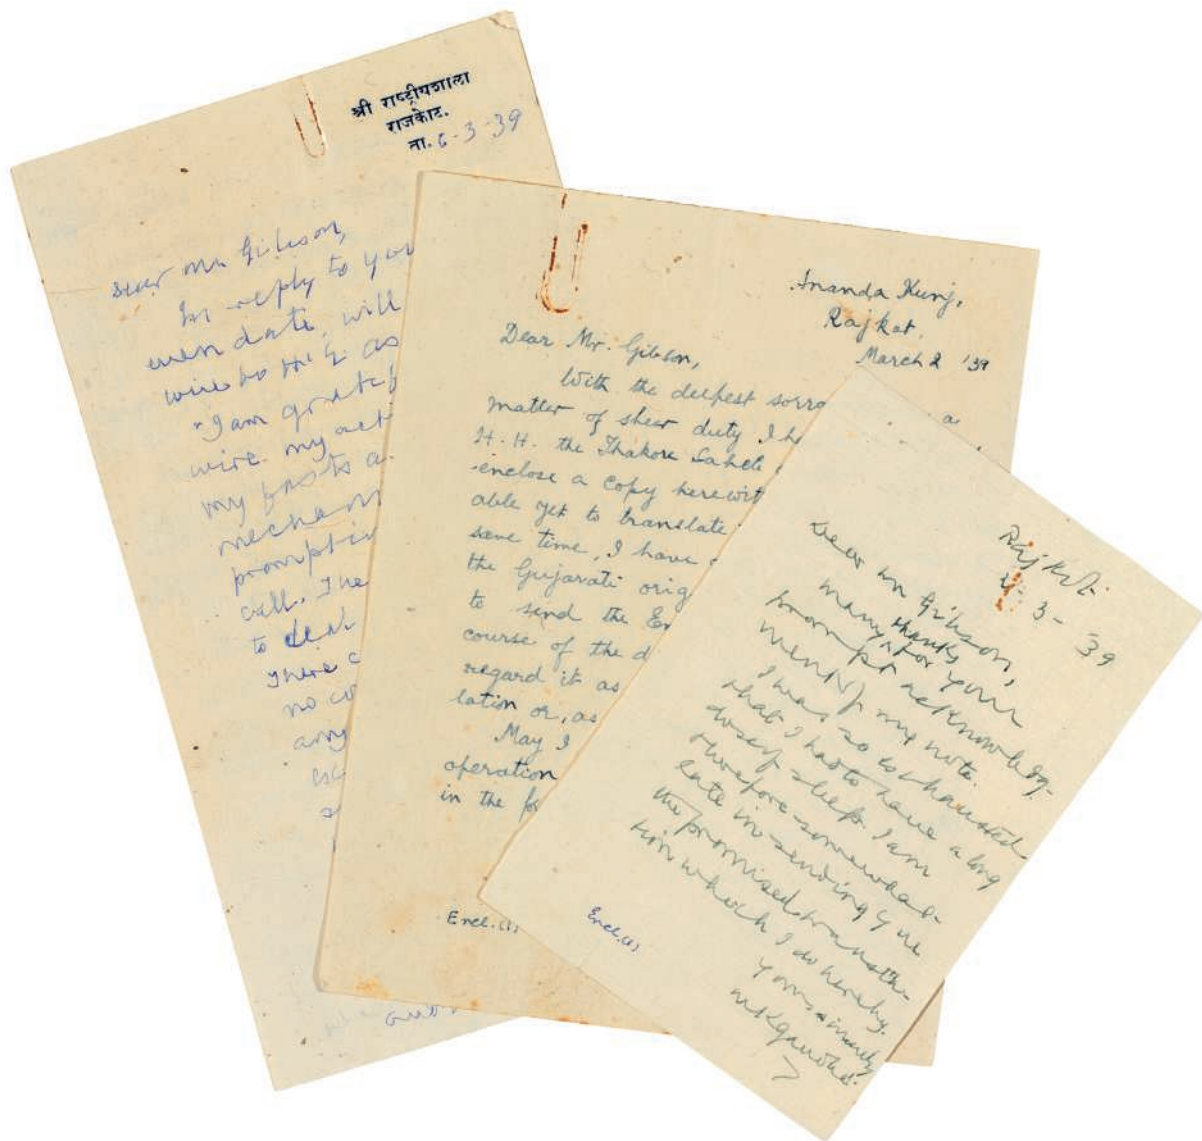 श्री राष्ट्रीयशाला
राजकोट.
ता. 6-3-39
Dear Mr. Gibson,
In reply to your
even date, will
wire to H.E. as
"I am grateful
wire. my
my fast a
mechan
promptin
call. The
to deal
There c
no co
any
Ananda Kunj,
Rajkot.
March 2 '39
Dear Mr. Gibson,
With the deepest sorro a
matter of sheer duty I ha
H. H. the Thakore Saheb
enclose a copy herewit
able yet to translate
same time, I have
the Gujarati orig
to send the En
course of the d
regard it as
lation or, as
May I
operation
in the fo
Encl.(1)
Rajkot
3-39
Dear Mr Gibson,
many thanks for your
prompt acknowledg-
ment of my note.
I was so exhausted
that I had to have a long
dose of sleep. I am
therefore somewhat
late in sending you
the promised transla-
tion which I do hereby.
yours sincerely
MKGandhi
Encl.(1)